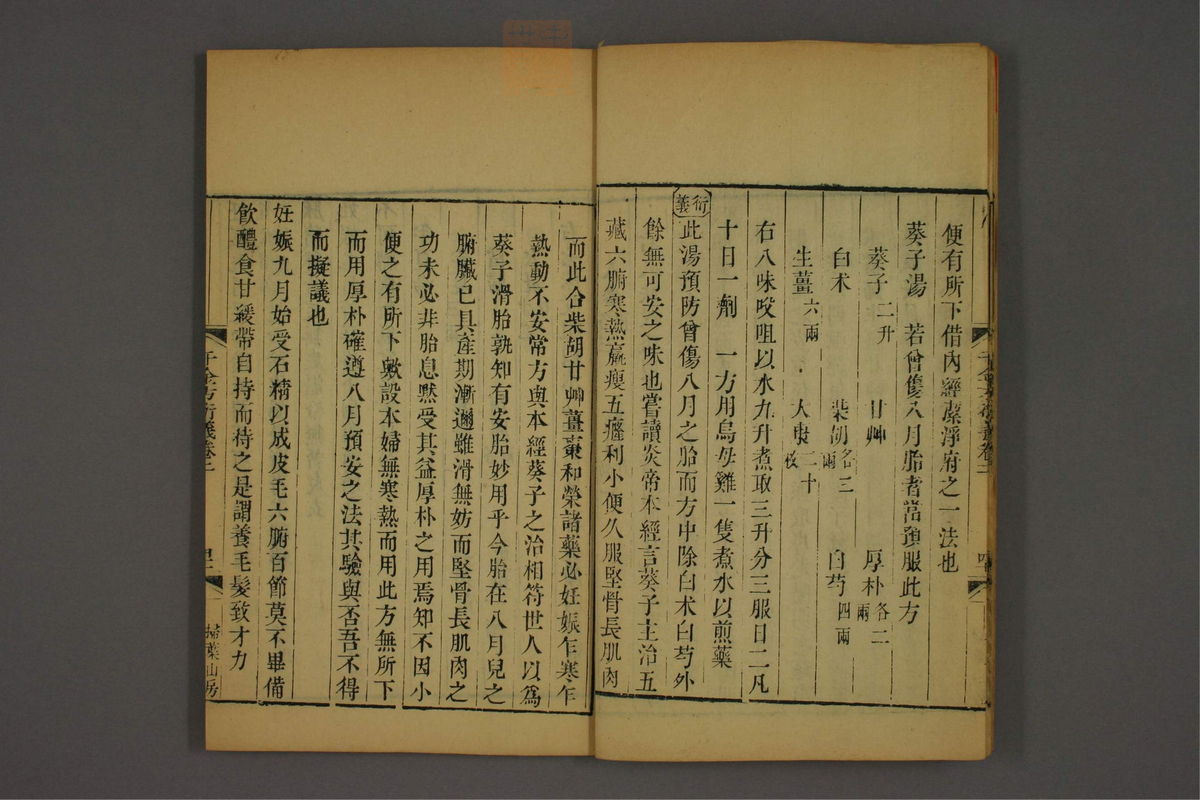 便有所下借內經潔淨府之一法也
葵子湯　若曾傷八月胎者當預服此方
葵子二升　甘艸　厚朴各二兩
白术　柴胡各三兩　白芍四兩
生薑六兩　大棗二十枚
右八味㕮咀以水九升煮取三升分三服日二凡
十日一劑　一方用烏母雞一隻煮水以煎藥
衍義　此湯預防曾傷八月之胎而方中除白术白芍外
餘無可安之味也嘗讀炎帝本經言葵子主治五
藏六腑寒熱羸瘦五癃利小便久服堅骨長肌肉
而此合柴胡甘艸薑棗和榮諸藥必妊娠乍寒乍
熱動不安常方與本經葵子之治相符世人以爲
葵子滑胎孰知有安胎妙用乎今胎在八月兒之
腑臟已具產期漸邇雖滑無妨而堅骨長肌肉之
功未必非胎息黙受其益厚朴之用焉知不因小
便之有所下歟設本婦無寒熱而用此方無所下
而用厚朴確遵八月預安之法其驗與否吾不得
而擬議也
妊娠九月始受石精以成皮毛六腑百節莫不畢備
飲醴食甘緩帶自持而待之是謂養毛髮致才力
千金方衍義卷二
掃葉山房